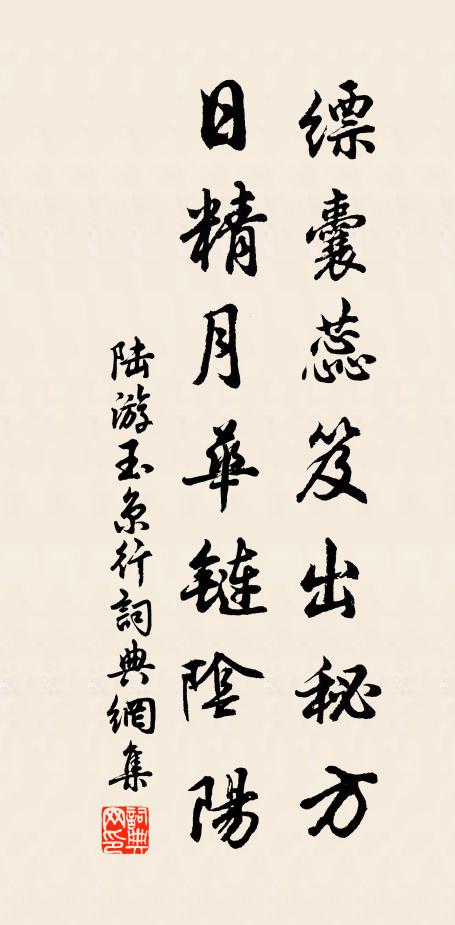 缥囊蕊笈出秘方
日精月華鏈陰陽
陆游玉京行詞典網集
詞典網印